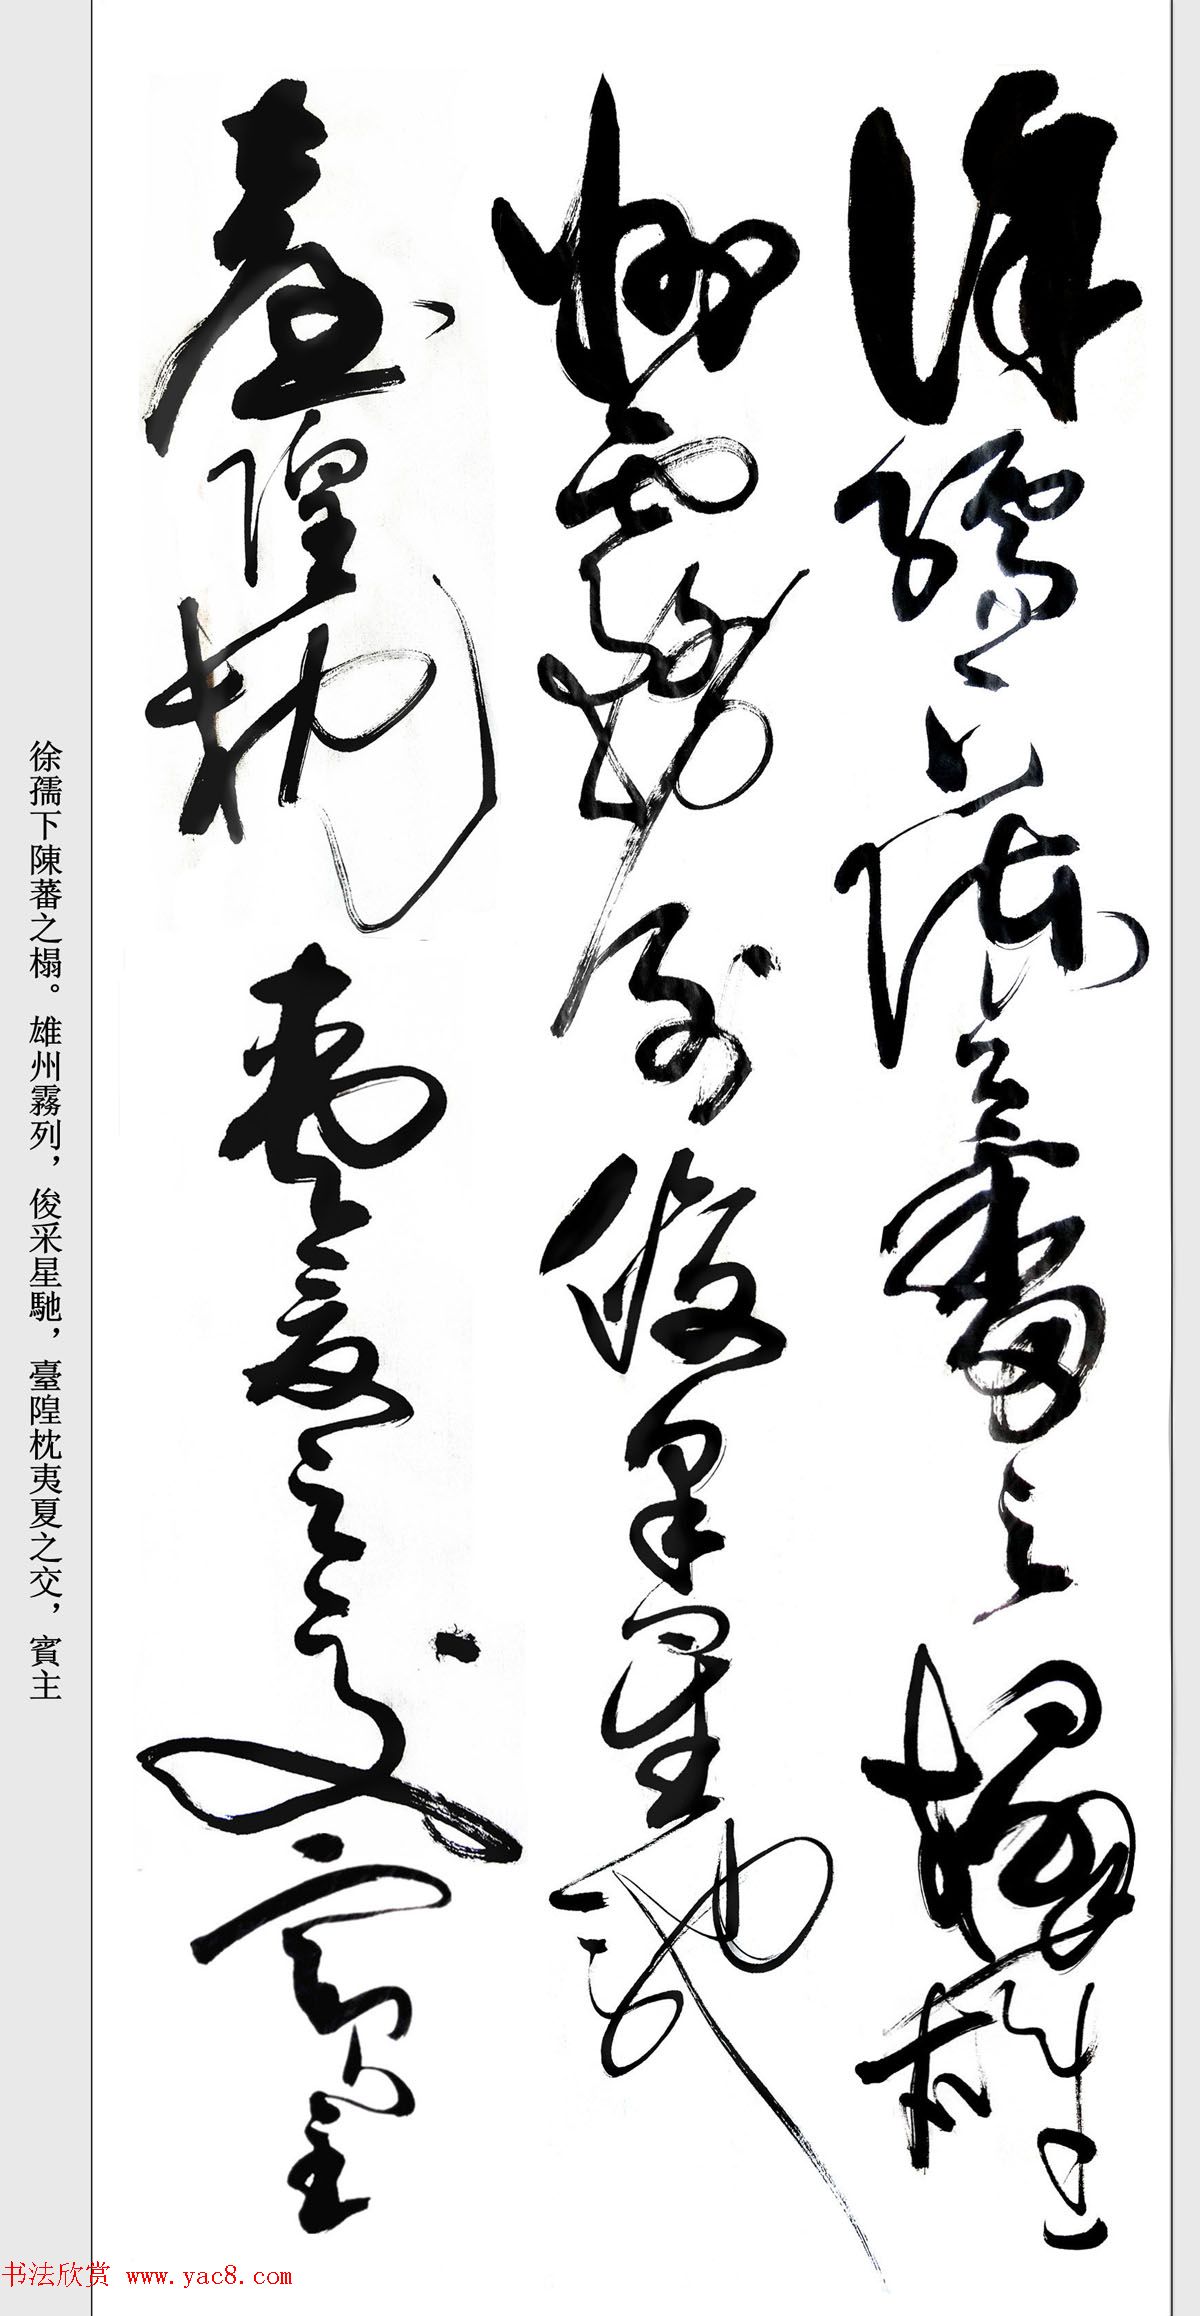 徐孺下陳蕃之榻雄
州霧列俊采星馳
臺隍枕夷夏之交賓主
徐孺下陳蕃之榻。雄州霧列，俊采星馳，臺隍枕夷夏之交，賓主
书法欣赏 www.yac8.com